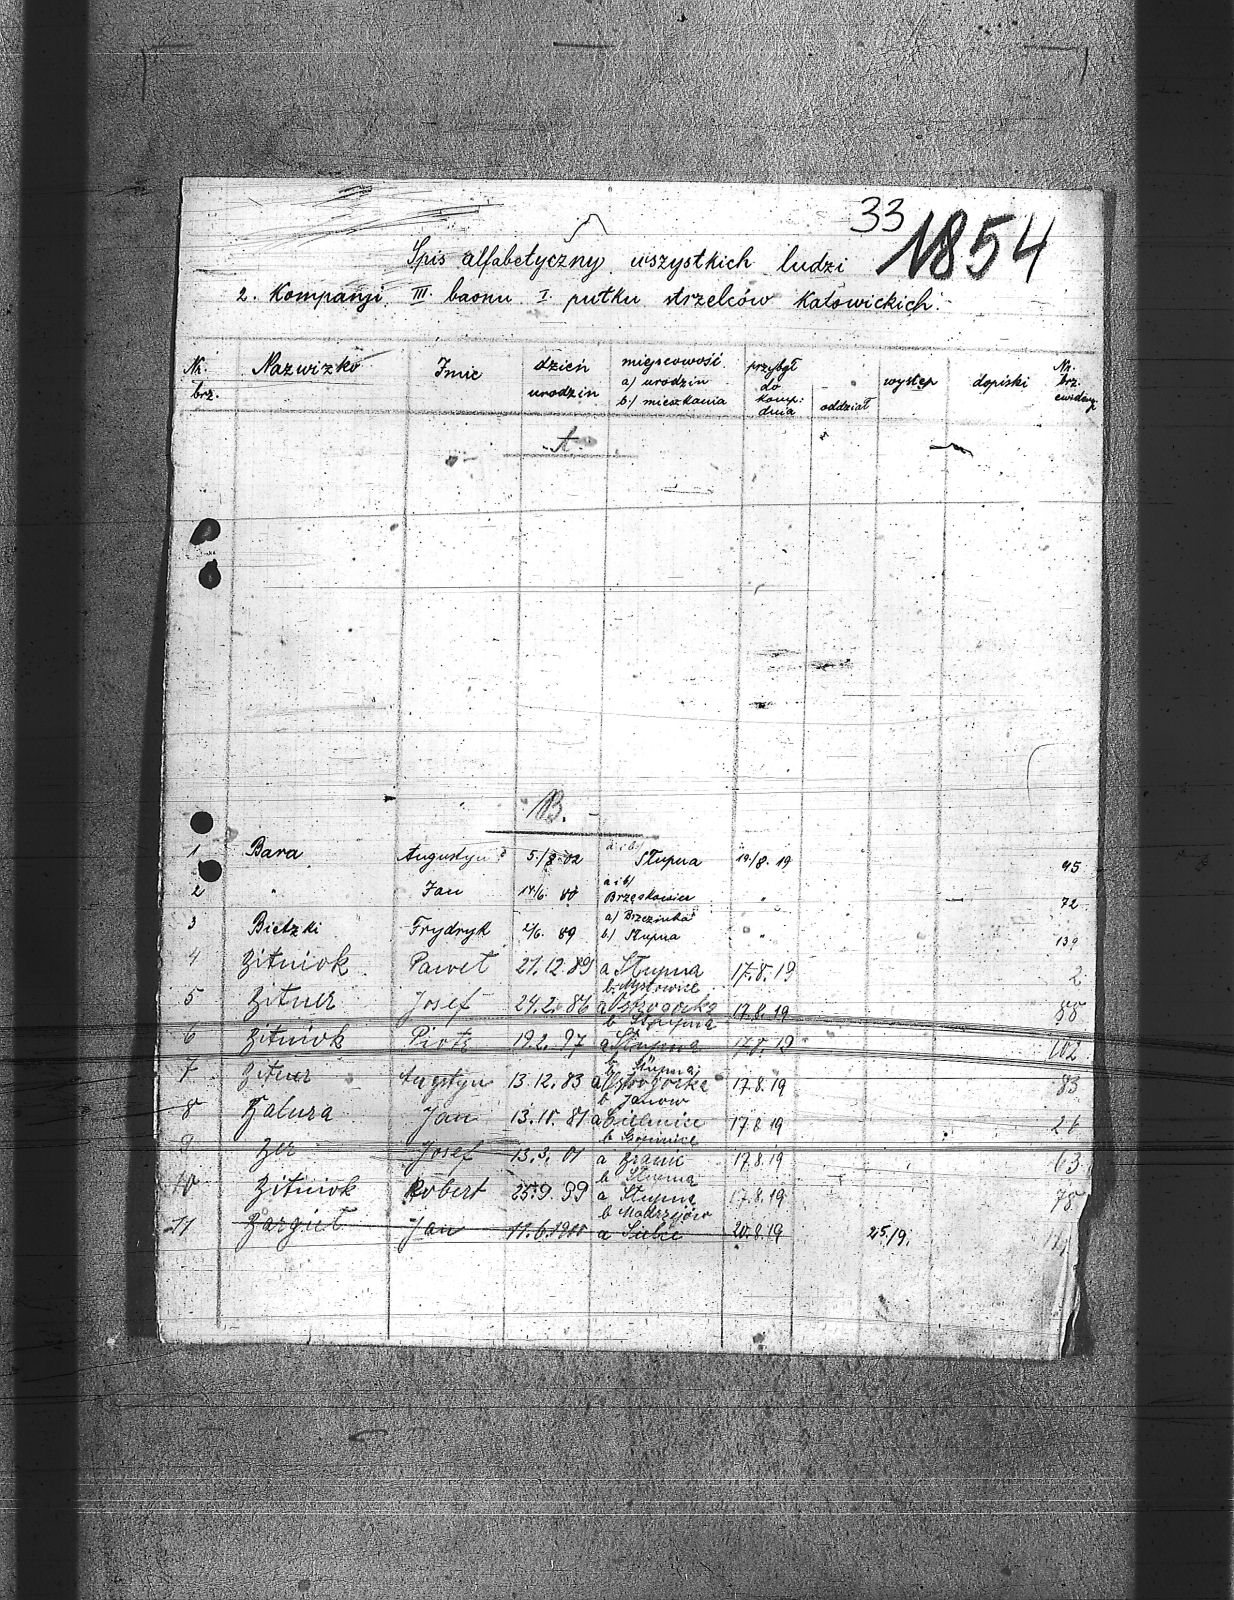 33
1854
Spis alfabetyczny wszystkich ludzi
2. Kompanji III. baonu I. pułku strzelców Katowickich.
Nr. brz. Nazwizko Imie dzień urodzin miejscowość a) urodzin b) mieszkania przybył do komp: dnia oddział występ dopiski Nr. brz. ewidency
A.
B.
1 Bara Augustyn 5/8 02 a i b) Słupna 19/8. 19 95
2 " Jan 14/6. 80 a i b) Brzęskowice " 72
3 Bietzki Frydryk 2/6. 89 a) Brzezinka b) Słupna " 139
4 Bitniok Paweł 21.12.89 a Słupna b. Mysłowice 17.8.19 2
5 Bitner Josef 24.2.86 a b Słupna 17.8.19 88
6 Bitniok Piotr 19.2.97 a Słupna b Słupna 17.8.19 102
7 Bitner Augustyn 13.12.83 a b Janow 17.8.19 83
8 Balura Jan 13.10.81 a b 17.8.19 26
9 Ber Josef 13.3.01 a b Słupna 17.8.19 63
10 Bitniok Robert 25.9.99 a Słupna b Modrzejów 17.8.19 78
11 Bargieł Jan 11.6.1900 a 20.8.19 25/9.